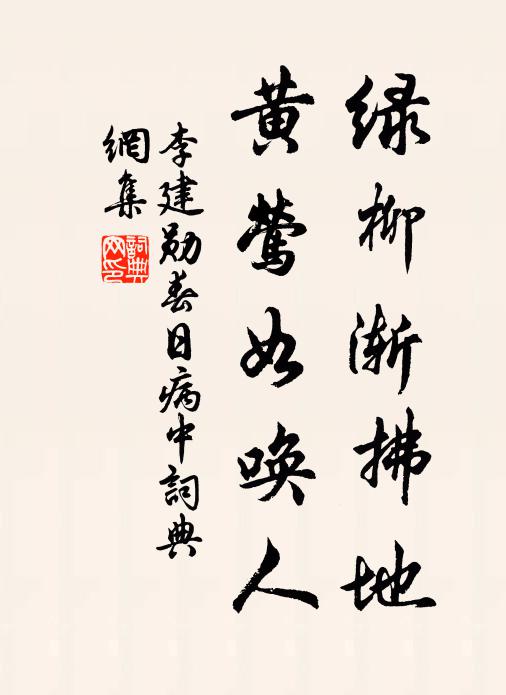 绿柳渐拂地
黄莺如唤人
李建勋春日病中詞典
網集
詞典网印